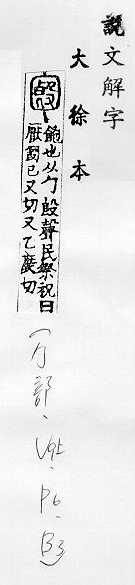 說文解字
大徐本
飽也从勹𣪘聲民祭祝曰
厭𠣞己又切又乙庶切
(勹部、V9上、P6、B3